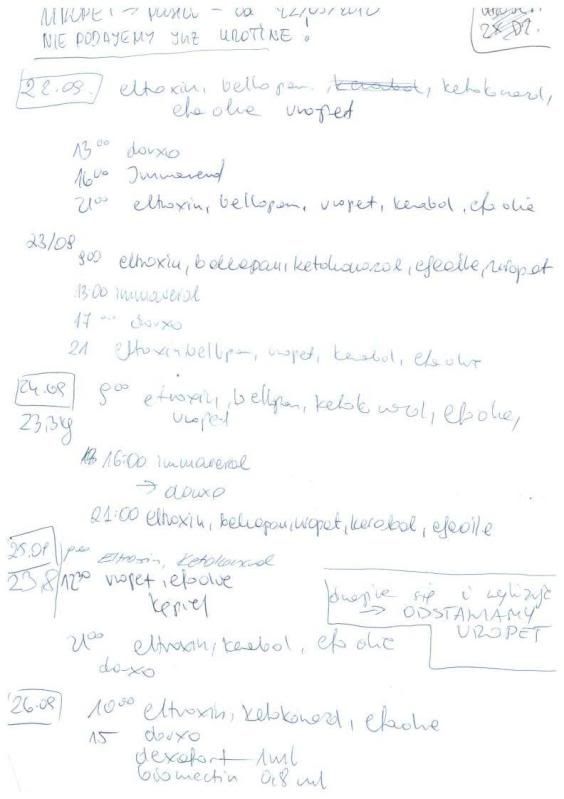 NIE PODAJEMY JUŻ UROTINE!
2x DZ.
22.08. eltroxin, bellopan, kerabol, ketokonazol,
efa olie uropet
13⁰⁰ douxo
16⁰⁰ Immaverol
21⁰⁰ eltroxin, bellopan, uropet, kerabol, efa olie
23/08
9⁰⁰ eltroxin, bellopan, ketokonazol, efaolie, uropet
13:00 immaverol
17⁰⁰ douxo
21 eltroxin bellopan, uropet, kerabol, efa olie
24.08 9⁰⁰ eltroxin, bellopan, ketokonazol, efaolie,
23,3kg uropet
16:00 immaverol
→ douxo
21:00 eltroxin, bellopan, uropet, kerabol, efaolie
25.08 Eltroxin, Ketokonazol
23,8 12³⁰ uropet, efaolie
kąpiel
drapie się i wylizuje
→ ODSTAWIAMY
UROPET
21⁰⁰ eltroxin, kerabol, efa olie
douxo
26.08 10⁰⁰ eltroxin, ketokonazol, efaolie
15 douxo
dexafort 1ml
biomectin 0,8 ml